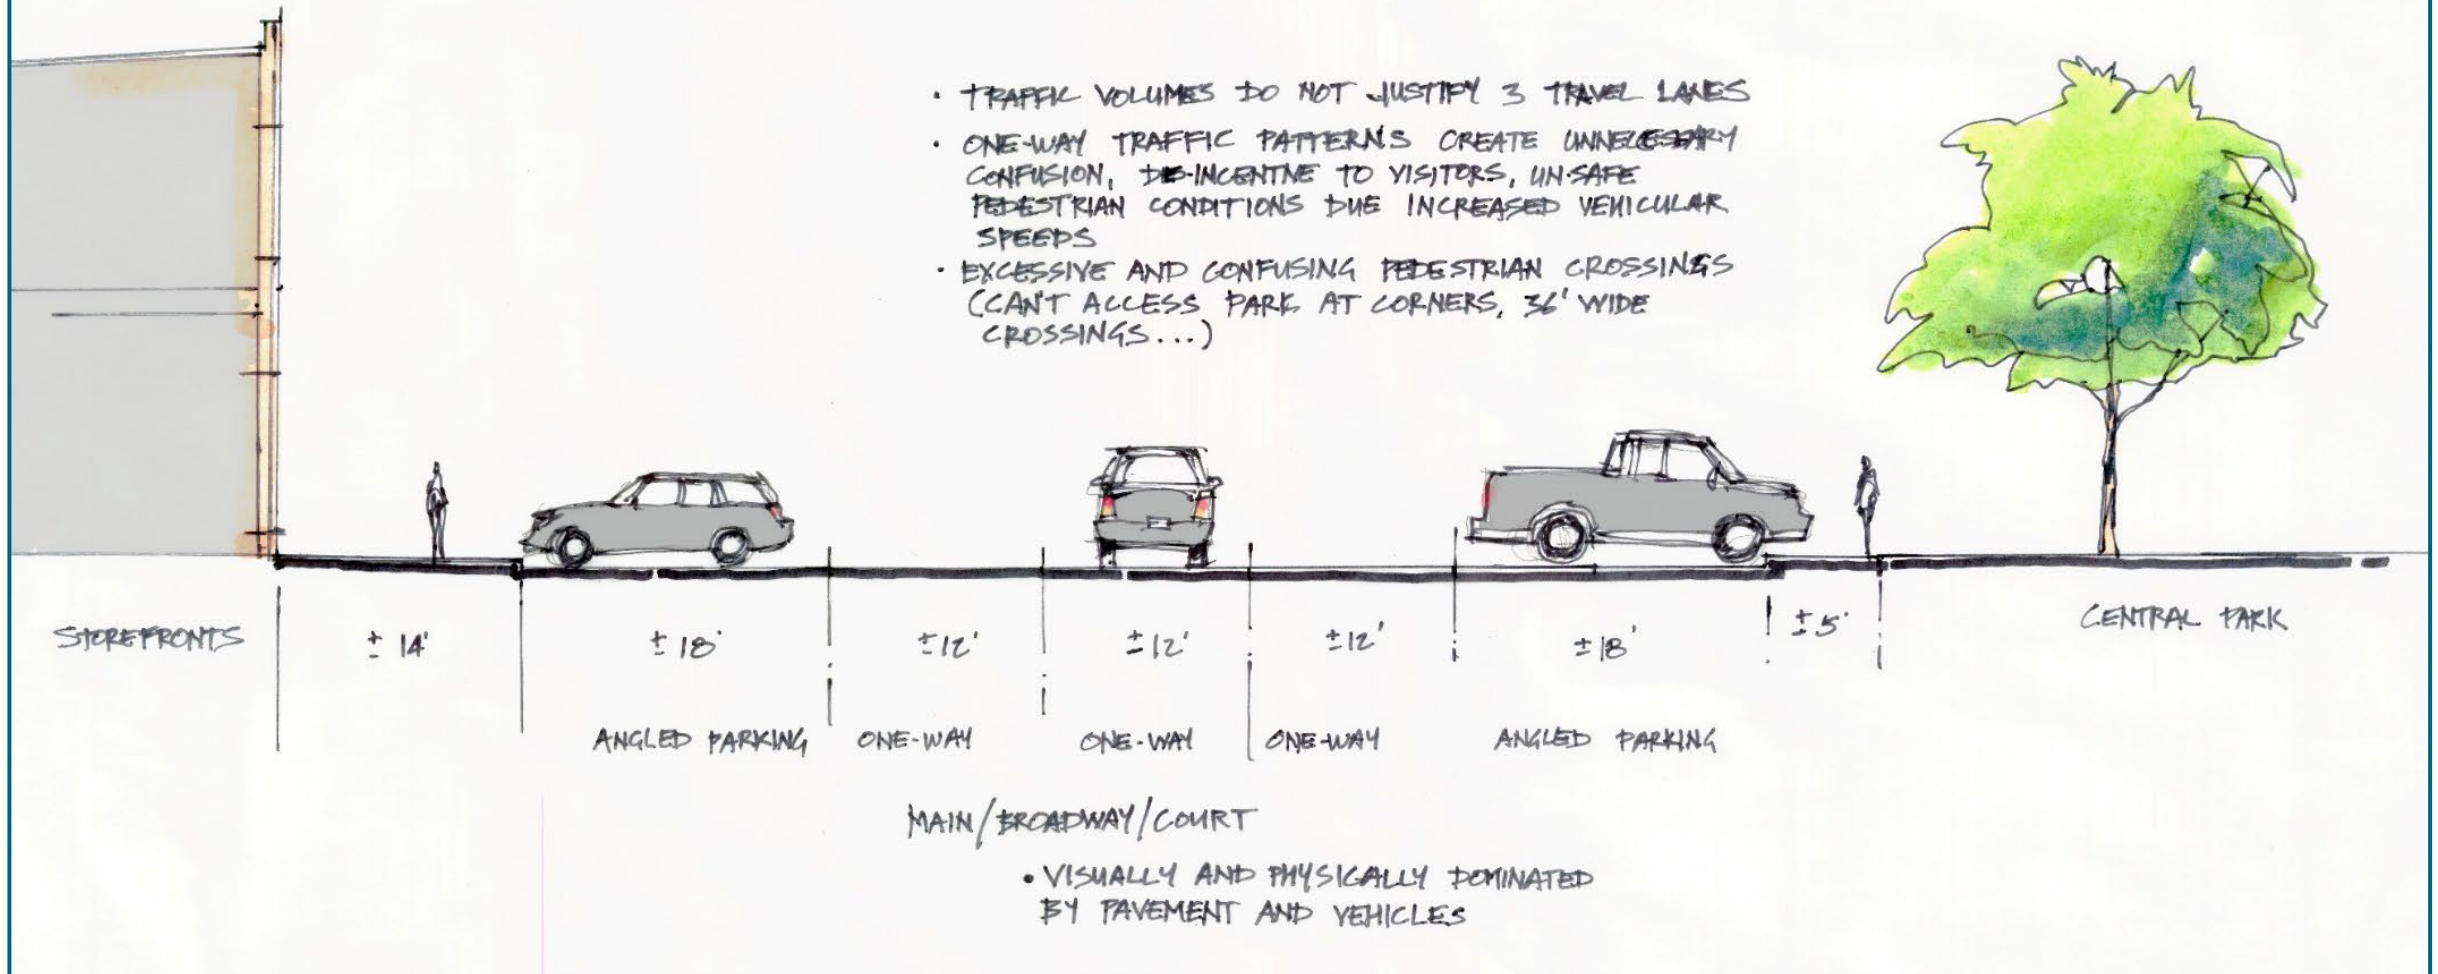 • TRAFFIC VOLUMES DO NOT JUSTIFY 3 TRAVEL LANES
• ONE-WAY TRAFFIC PATTERNS CREATE UNNECESSARY
CONFUSION, DIS-INCENTIVE TO VISITORS, UN-SAFE
PEDESTRIAN CONDITIONS DUE INCREASED VEHICULAR
SPEEDS
• EXCESSIVE AND CONFUSING PEDESTRIAN CROSSINGS
(CAN'T ACCESS PARK AT CORNERS, 36' WIDE
CROSSINGS...)
STOREFRONTS ± 14' ± 18' ± 12' ± 12' ± 12' ± 18' ± 5' CENTRAL PARK
ANGLED PARKING ONE-WAY ONE-WAY ONE-WAY ANGLED PARKING
MAIN/BROADWAY/COURT
• VISUALLY AND PHYSICALLY DOMINATED
BY PAVEMENT AND VEHICLES